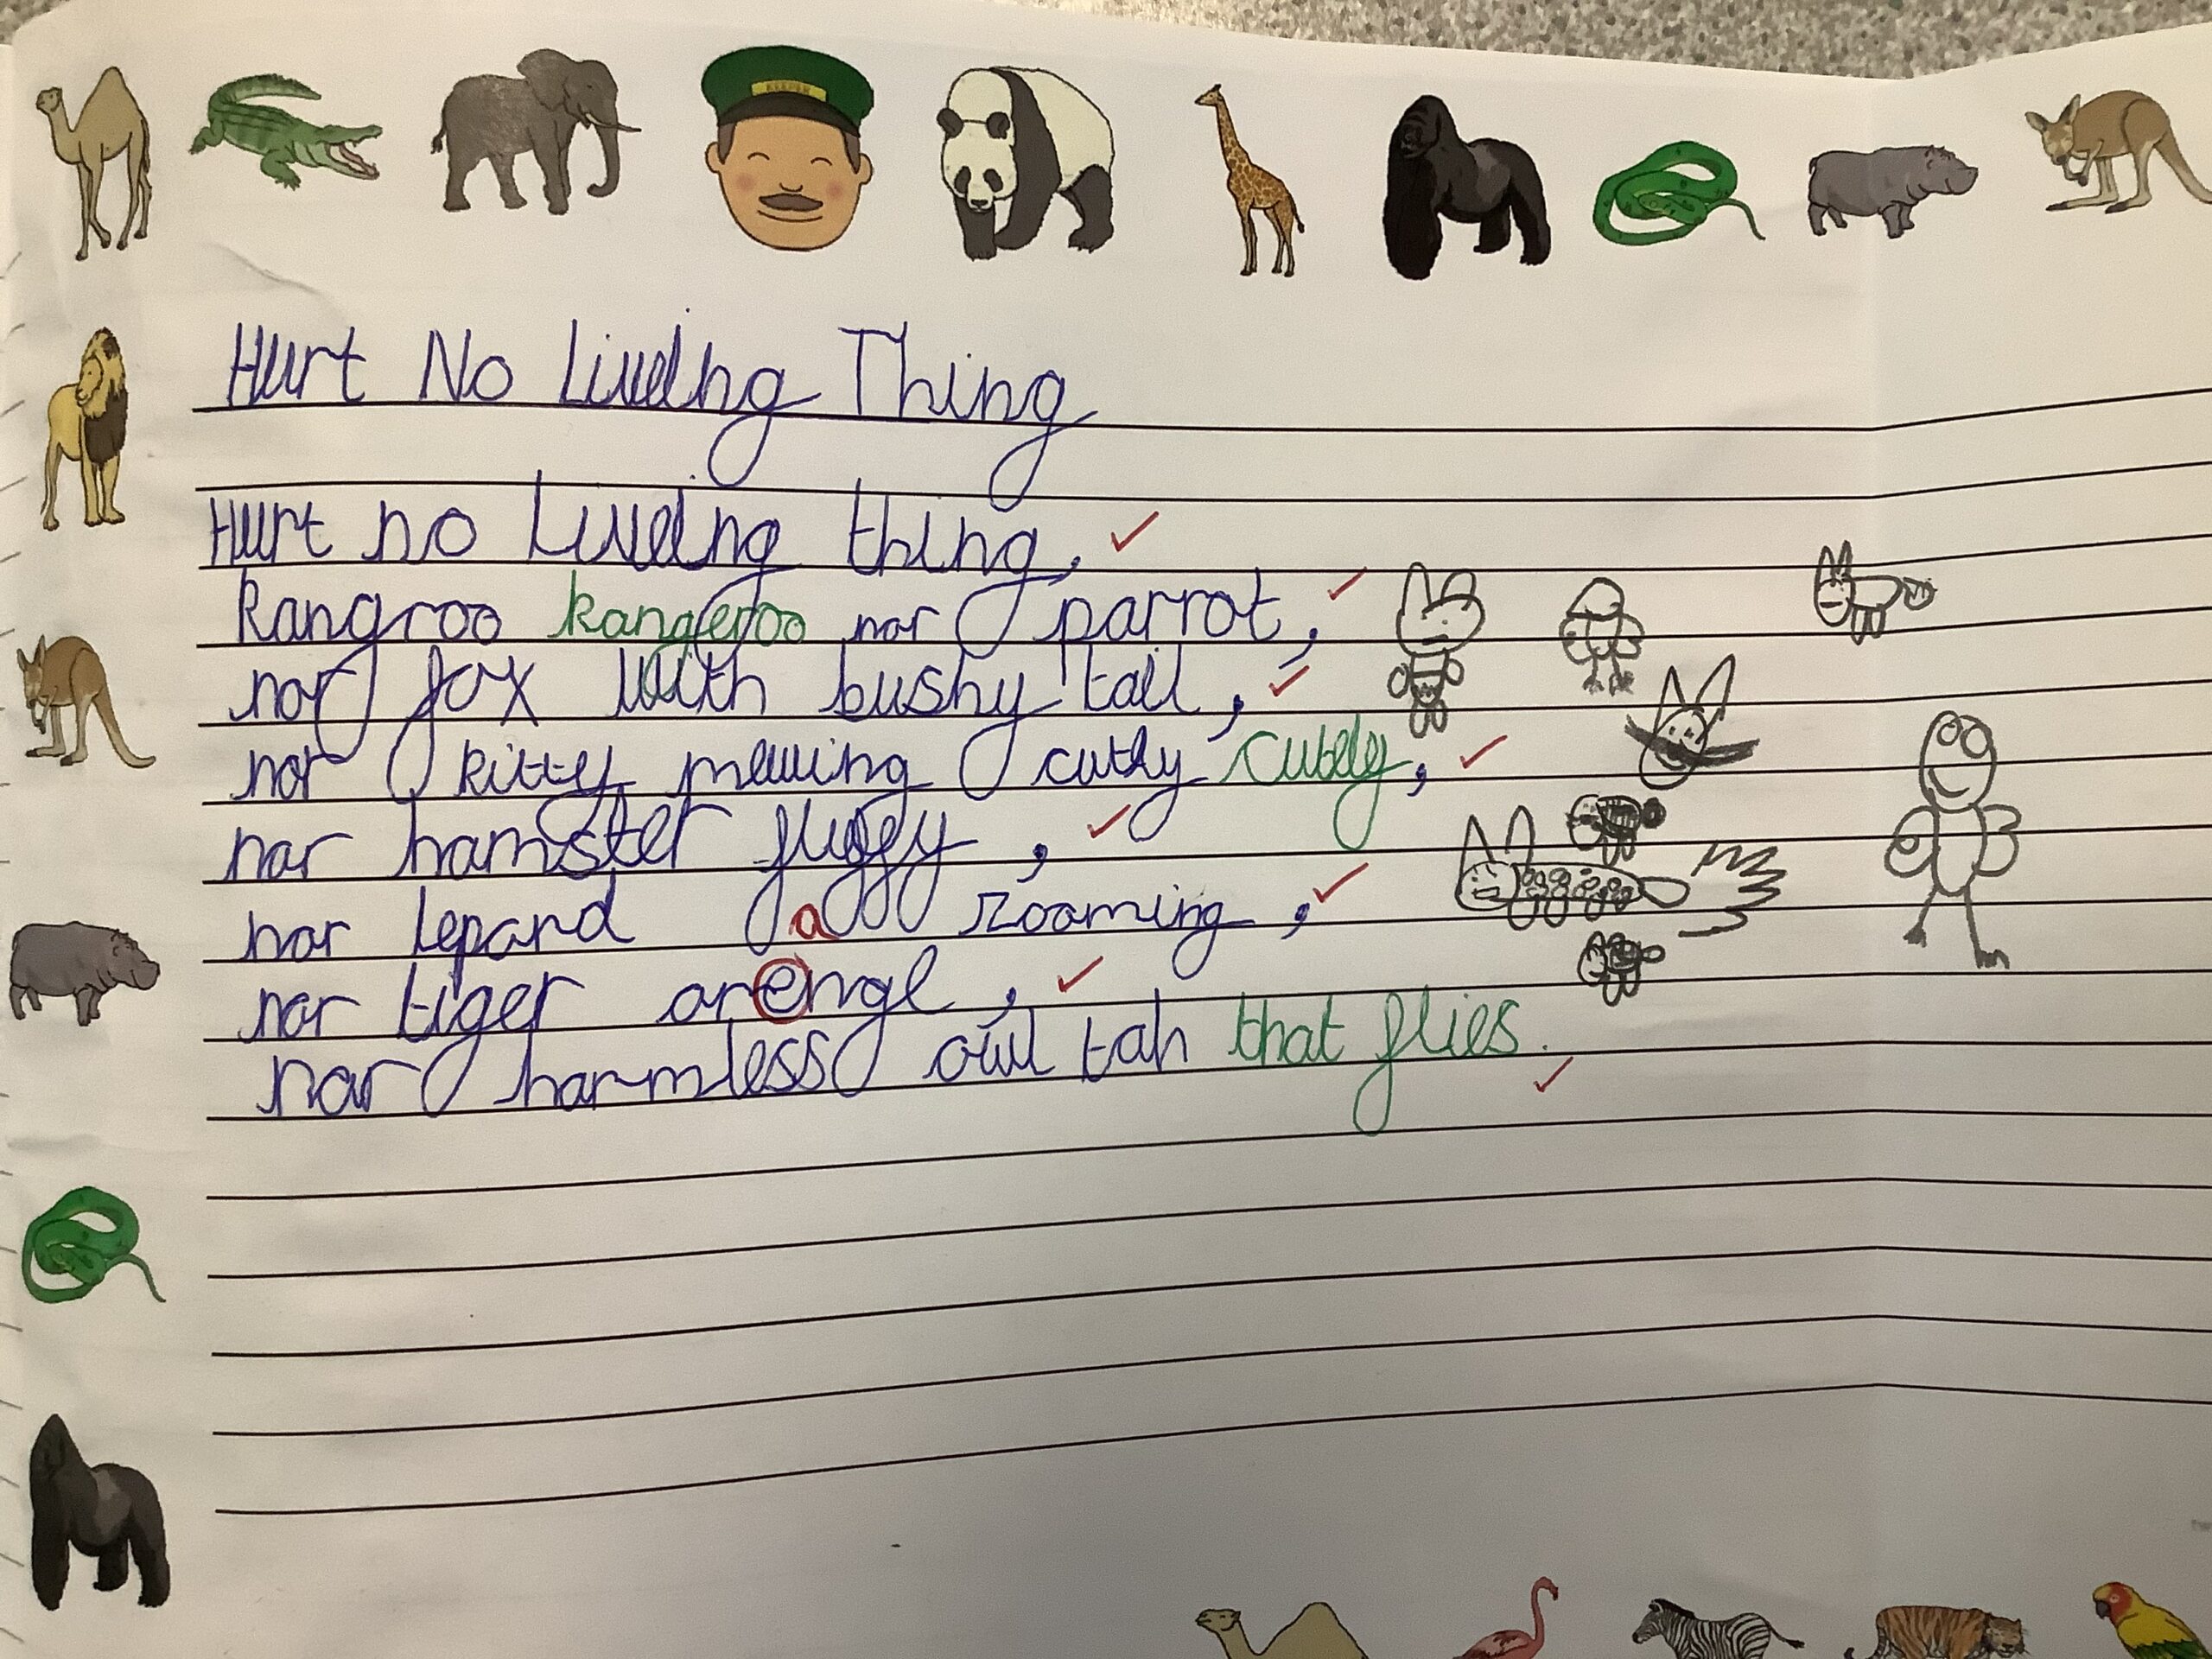 KEEPER
Hurt No Liveing Thing
Hurt no Liveing thing,
kangroo kangeroo nor parrot,
nor fox with bushy tail,
nor kitty mewing cutly cutely,
nor hamster fluffy,
nor lepard roaming,
a
nor tiger orengl,
nor harmless owl tah that flies.